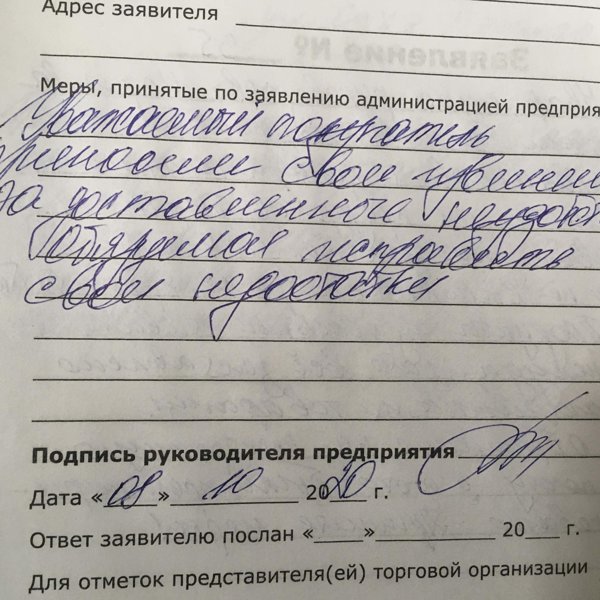 Адрес заявителя
Заявление №
Меры, принятые по заявлению администрацией предприя
Уважаемый покупатель
приносим свои извинен
за доставленные неудобст
Обязуемся исправить
свои недостатки
Подпись руководителя предприятия
Дата «09» 10 2020 г.
Ответ заявителю послан «___» ___ 20__ г.
Для отметок представителя(ей) торговой организации